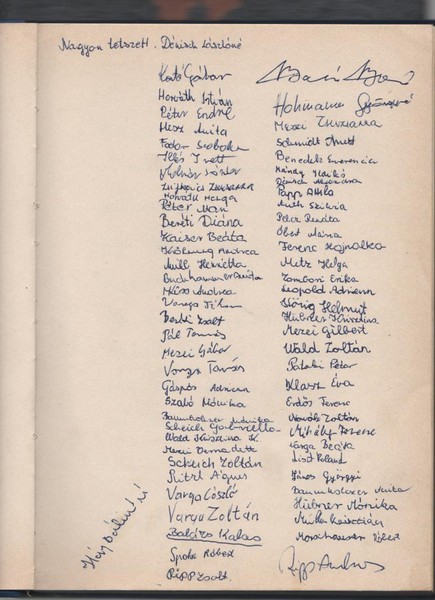 Nagyon tetszett. Dénisch Lászlóné
Kató Gábor
Horváth István
Péter Endre
Mesz Anita
Fodor Szabolcs
Illés Ivett
Molnár Sándor
Horváth Helga
Péter Mari
Beréti Diána
Kaiser Beáta
Andrea
Müll Henrietta
Buchhammer Anita
Andrea
Varga Tibor
Berki Zsolt
Pál Tamás
Mezei Gábor
Varga Tamás
Gáspár Adrienn
Szabó Mónika
Baumholczer Mónika
Scheich Georgetta
Wald Krisztina K.
Mezei Bernadett
Scheich Zoltán
Ritzl Ágnes
Varga László
Varga Zoltán
Balázs Kalas
Spohn Róbert
Ripp Zsolt.
Hohmann Györgyné
Mezei Zsuzsanna
Schmidt Anett
Benedek Emerencia
Mándy Ildikó
Dénisch Marianna
Papp Attila
Muth Szilvia
Péter Renáta
Óbert Mária
Ferenc Hajnalka
Metz Helga
Zombori Erika
Leopold Adrienn
König Helmut
Hübner Krisztina
Mezei Gilbert
Wald Zoltán
Pataki Péter
Klasz Éva
Erdős Ferenc
Novák Zoltán
Mihály Ferenc
Varga Beáta
List Roland
János Györgyi
Baumholczer Anita
Hübner Mónika
Müller Krisztián
Morschauser Róbert
Ripp Andrea